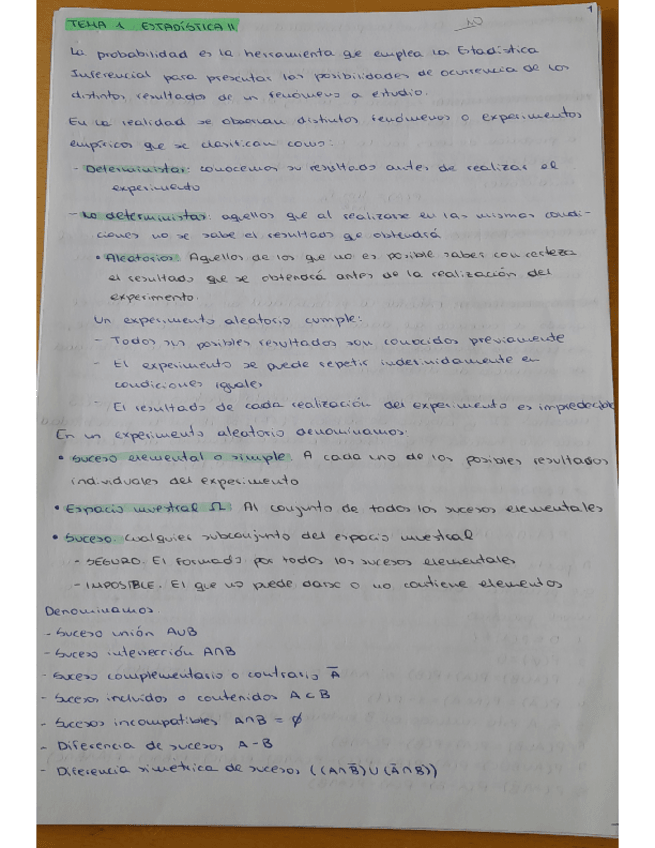 1
TEMA 1 ESTADÍSTICA II
La probabilidad es la herramienta que emplea la Estadística
Inferencial para presentar las posibilidades de ocurrencia de los
distintos resultados de un fenómeno a estudio.
En la realidad se observan distintos fenómenos o experimentos
empíricos que se clasifican como:
- Deterministas: conocemos su resultado antes de realizar el
experimento
- No deterministas: aquellos que al realizarse en las mismas condi-
ciones no se sabe el resultado que obtendrá
• Aleatorios: Aquellos de los que no es posible saber con certeza
el resultado que se obtendrá antes de la realización del
experimento.
Un experimento aleatorio cumple:
- Todos sus posibles resultados son conocidos previamente
- El experimento se puede repetir indefinidamente en
condiciones iguales
- El resultado de cada realización del experimento es impredecible
En un experimento aleatorio denominamos:
• Suceso elemental o simple: A cada uno de los posibles resultados
individuales del experimento
• Espacio muestral Ω: Al conjunto de todos los sucesos elementales
• Suceso: Cualquier subconjunto del espacio muestral
- SEGURO. El formado por todos los sucesos elementales
- IMPOSIBLE. El que no puede darse o no contiene elementos
Denominamos:
- Suceso unión A∪B
- Suceso intersección A∩B
- Suceso complementario o contrario A̅
- Sucesos incluidos o contenidos A⊂B
- Sucesos incompatibles A∩B = ∅
- Diferencia de sucesos A-B
- Diferencia simétrica de sucesos ((A∩B̅)∪(A̅∩B))